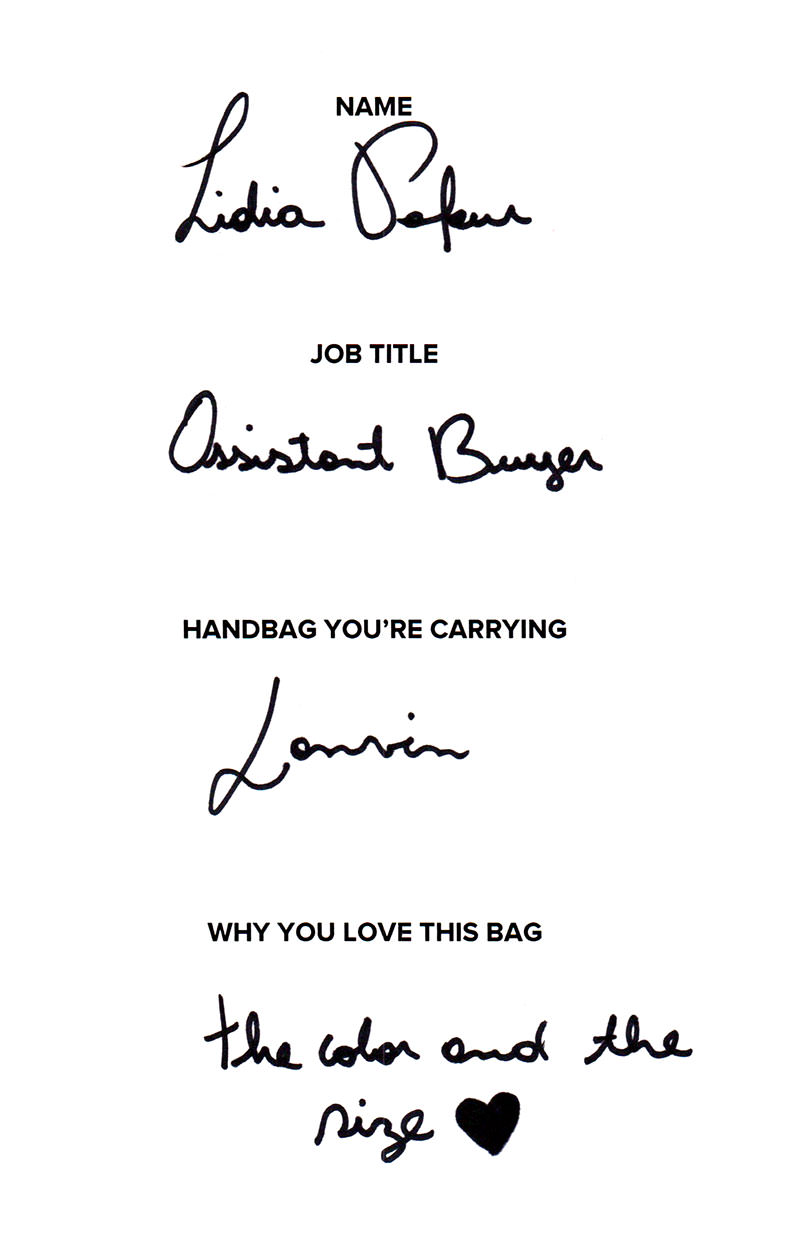 NAME
Lidia
JOB TITLE
Assistant Buyer
HANDBAG YOU'RE CARRYING
Lanvin
WHY YOU LOVE THIS BAG
the color and the
size